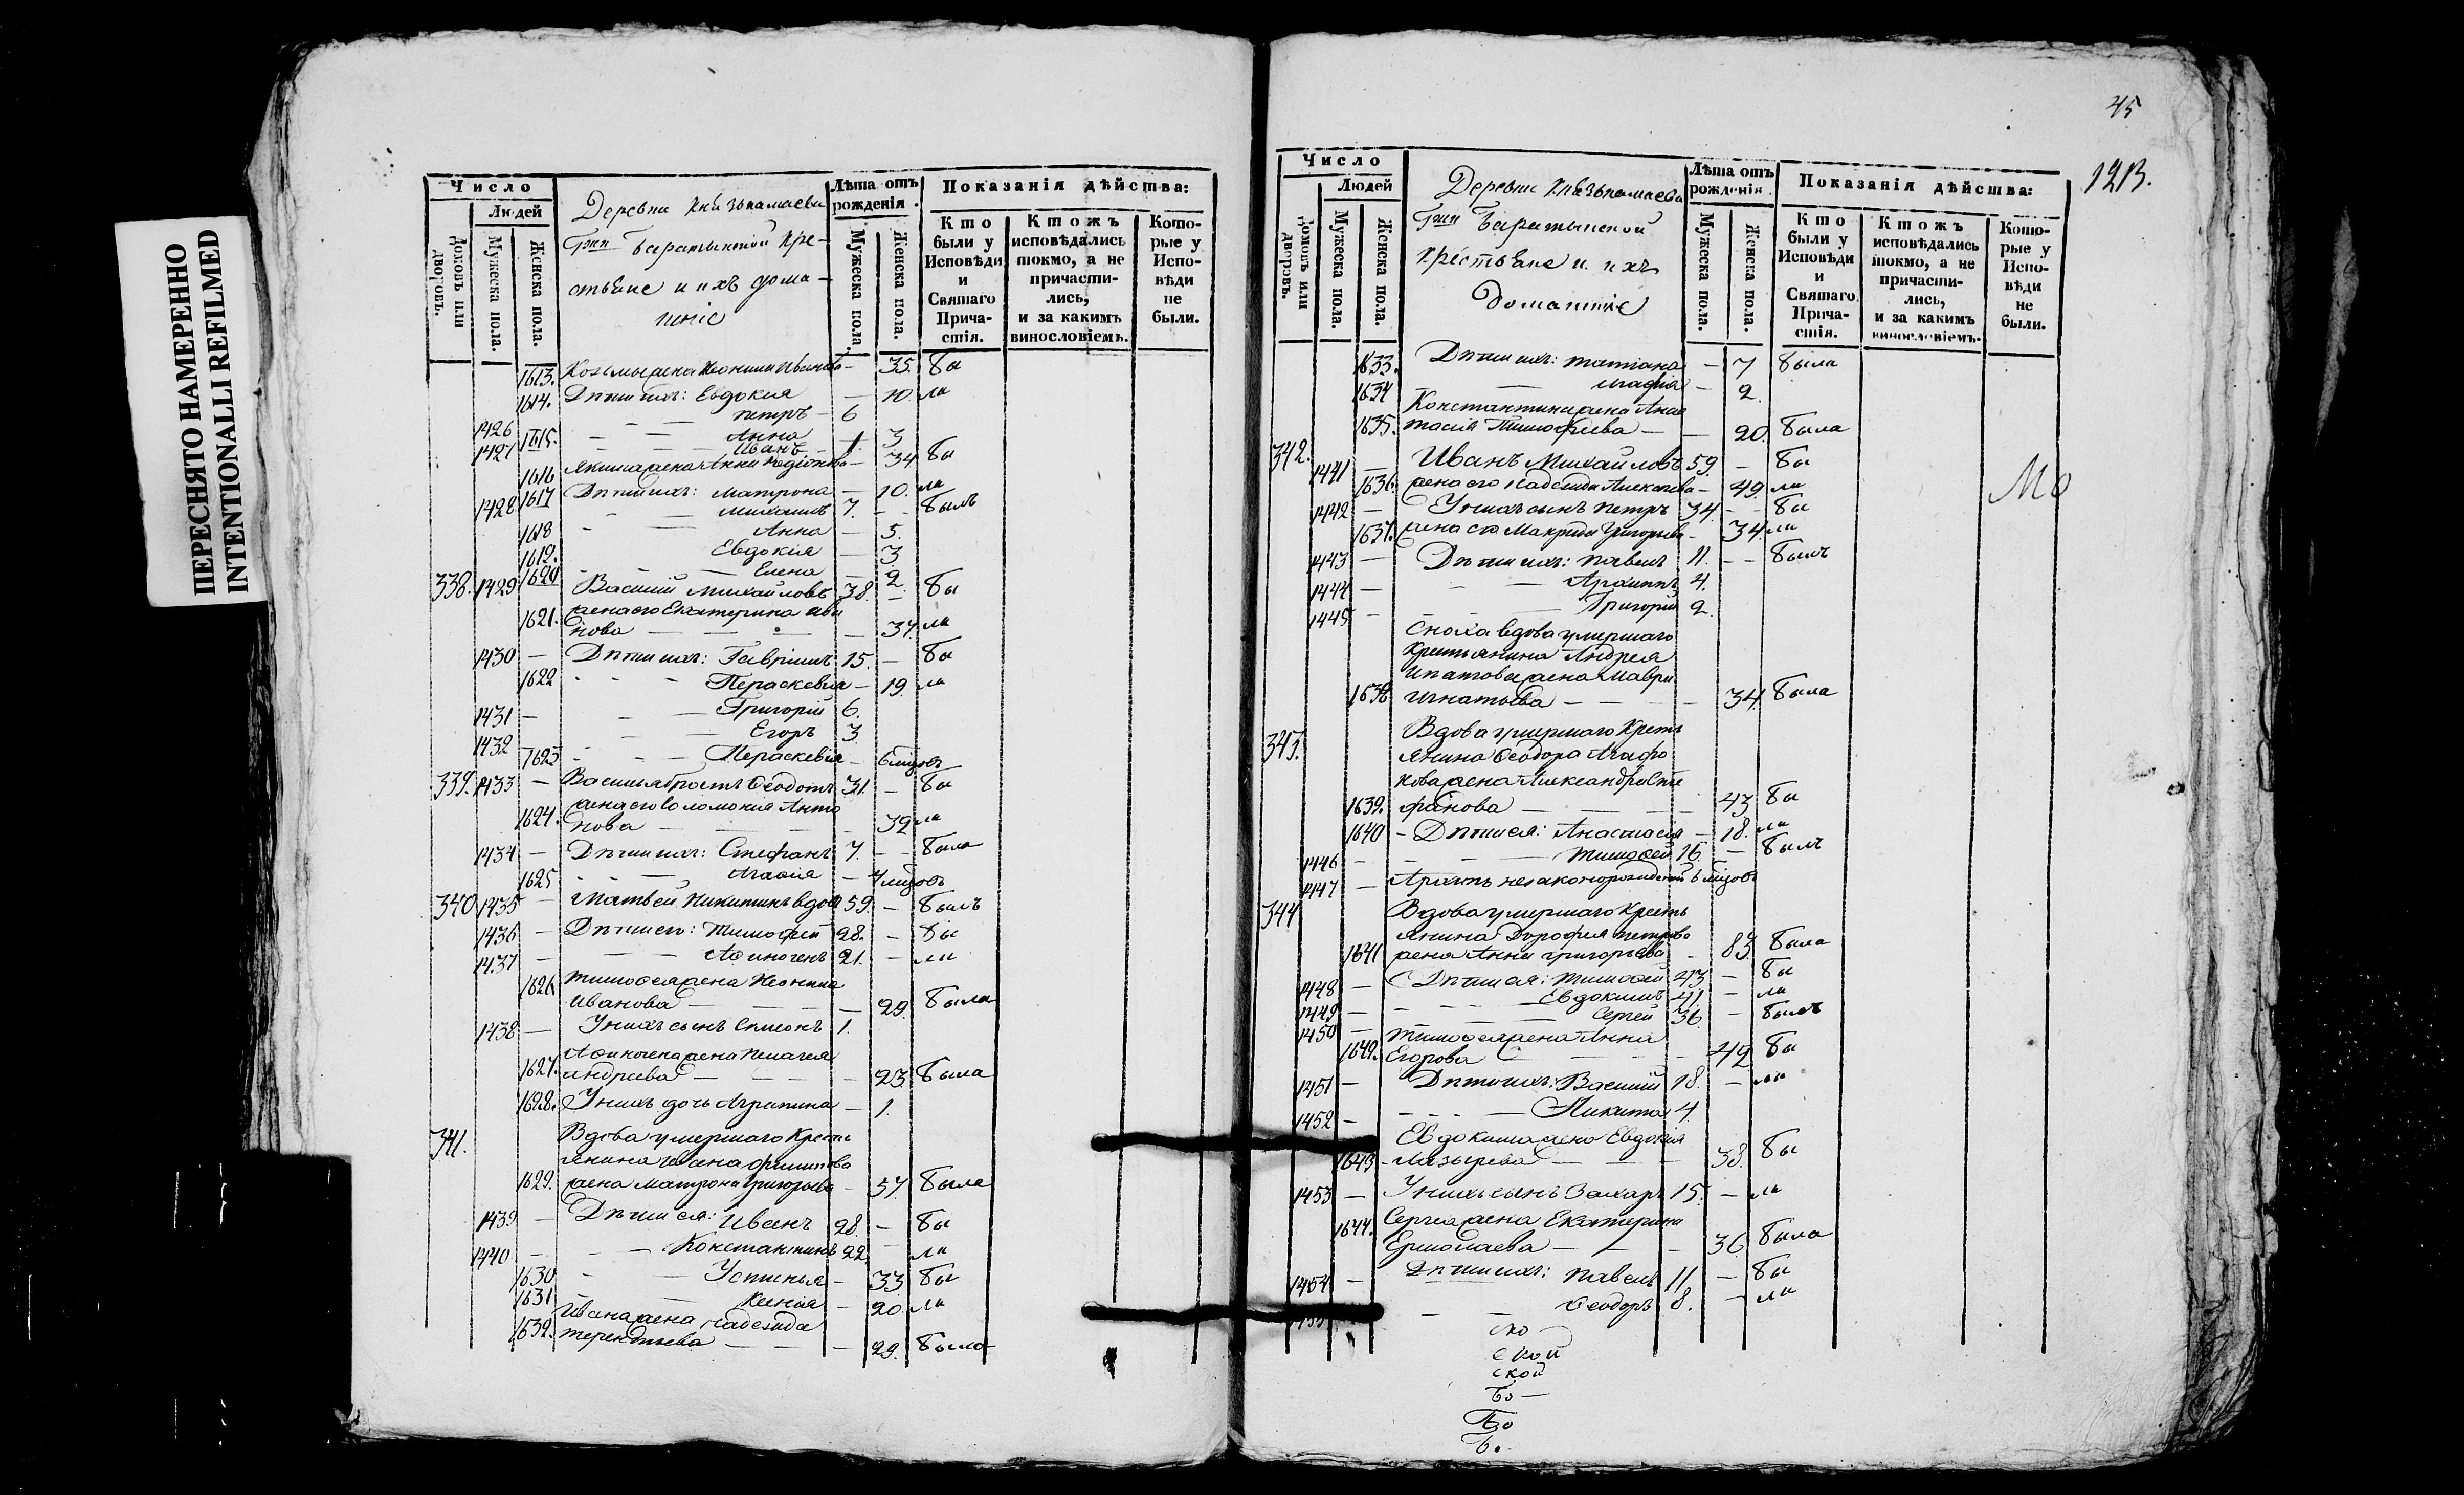 ПЕРЕСНЯТО НАМЕРЕННО
INTENTIONALLI REFILMED
Число
Людей
домовъ или дворовъ.
Мужеска пола.
Женска пола.
Деревни Князькамаева
Гжи Баратынской кре-
стьяне и ихъ дома-
шніе
Лѣта отъ рожденія.
Мужеска пола.
Женска пола.
Показанія дѣйства:
Кто были у Исповѣди и Святаго Причастія.
Ктожъ исповѣдались токмо, а не причастились, и за какимъ винословіемъ.
Которые у Исповѣди не были.
1613. Козьмы жена Неонила Иванова - 35. бы
1614. Дѣти ихъ: Евдокия - 10. ла
1426 Петръ - 6
1615. Анна - 3
1427 Иванъ 1.
1616 Якима жена Анна Родіонова - 34 бы
1617 Дѣти ихъ: Матрона - 10. ла
1428 Михаилъ 7. - былъ
1618 Анна - 5.
1619. Евдокія - 3
1620 Елена - 2.
338. 1429 Василій Михайловъ 38. - бы
1621. жена его Екатерина Ива
нова - 37. ла
1430 - Дѣти ихъ: Гавріилъ 15. - бы
1622 Пераскевія - 19. ла
1431 - Григорій 6.
1432 Егоръ 3
1623 Пераскевія - 6 мцовъ
339. 1433 - Василья братъ Ѳеодотъ 31. - бы
1624. жена его Соломонія Анто
нова - 32 ла
1434 - Дѣти ихъ: Стефанъ 7. - была
1625 Агафія - 4 мцовъ
340 1435 - Матвей Никитинъ вдовъ 59. - былъ
1436 - Дѣти его: Тимофей 28. - бы
1437 - Афиногенъ 21. - ли
1626 Тимофея жена Неонила
Иванова - 29. была
1438 - У нихъ сынъ Симеонъ 1.
1627. Афиногена жена Пелагея
Андреева - 23. была
1628. У нихъ дочь Агрипина - 1.
341. Вдова умершаго Кресть
янина Ивана Филипова
1629. жена Матрона Григорьева - 57. была
1439 - Дѣти ея: Иванъ 28. - бы
1440 - Константинъ 22. ли
1630 Устинья - 33. бы
1631 Ксенія - 20. ла
Ивана жена Надежда
1632. Терентьева - 29. была
45
1213.
Число
Людей
домовъ или дворовъ.
Мужеска пола.
Женска пола.
Деревни Князькамаева
Гжи Баратынской
крестьяне и ихъ
домашніе
Лѣта отъ рожденія.
Мужеска пола.
Женска пола.
Показанія дѣйства:
Кто были у Исповѣди и Святаго Причастія.
Ктожъ исповѣдались токмо, а не причастились, и за какимъ винословіемъ.
Которые у Исповѣди не были.
1633. Дѣти ихъ: Татіана - 7 была
1634 - 2.
Константина жена Анас
1635. тасія Тимофеева - 20. была
342. 1441 - Иванъ Михайловъ 59. - бы
1636. жена его Надежда Алексеева - 49. ла
1442 - У нихъ сынъ Петръ 34. - бы
1637. жена его Макрида Григорьева - 34 ла
1443 - Дѣти ихъ: Павелъ 11. - былъ
1444 - Архипъ 4.
1445 - Григорій 2.
Сноха вдова умершаго
Крестьянина Андрея
Ипатова жена Мавра
1638 Игнатьева - 34. была
343. Вдова умершаго Кресть
янина Ѳеодора Агафо
нова жена Александра Сте
1639. фанова - 43 бы
1640 - Дѣти ея: Анастасія - 18. ла
1446 - Тимофей 16 - былъ
1447 - Архипъ незаконорожденный 6 мцовъ
344 Вдова умершаго Кресть
янина Дорофея Петрова
1641 жена Анна Григорьева - 83. была
1448 - Дѣти ея: Тимофей 43 - бы
1449 - Евдокимъ 41. - ли
1450 - Сергей 36. - былъ
Тимофея жена Анна
1642. Егорова - 42 бы
1451 - Дѣти ихъ: Василій 18. - ли
1452 - Никита 4
Евдокима жена Евдокія
1643 - Лазырева - 38. бы
1453 - У нихъ сынъ Захаръ 15. - ли
1644. Сергея жена Екатерина
Ермолаева - 36. была
1454 - Дѣти ихъ: Павелъ 11. - бы
1455 Ѳеодоръ 8. - ли
ской
ской